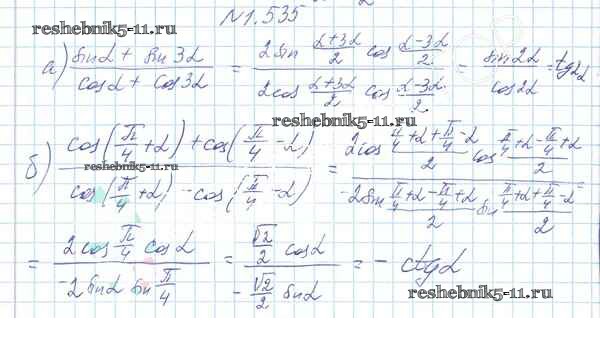 №1.535
reshebnik5-11.ru
а) (sinα + sin 3α)/(cosα + cos3α) = (2sin (α+3α)/2 cos (α-3α)/2)/(2cos (α+3α)/2 cos (α-3α)/2) = sin2α/cos2α = tg2α
reshebnik5-11.ru
б) (cos(π/4 + α) + cos(π/4 - α))/(cos(π/4 + α) - cos(π/4 - α)) = (2cos (π/4+α+π/4-α)/2 cos (π/4+α-π/4+α)/2)/(-2sin (π/4+α-π/4+α)/2 sin (π/4+α+π/4-α)/2)
reshebnik5-11.ru
= (2cos π/4 cosα)/(-2sinα sin π/4) = (√2/2 cosα)/(-√2/2 sinα) = - ctgα
reshebnik5-11.ru